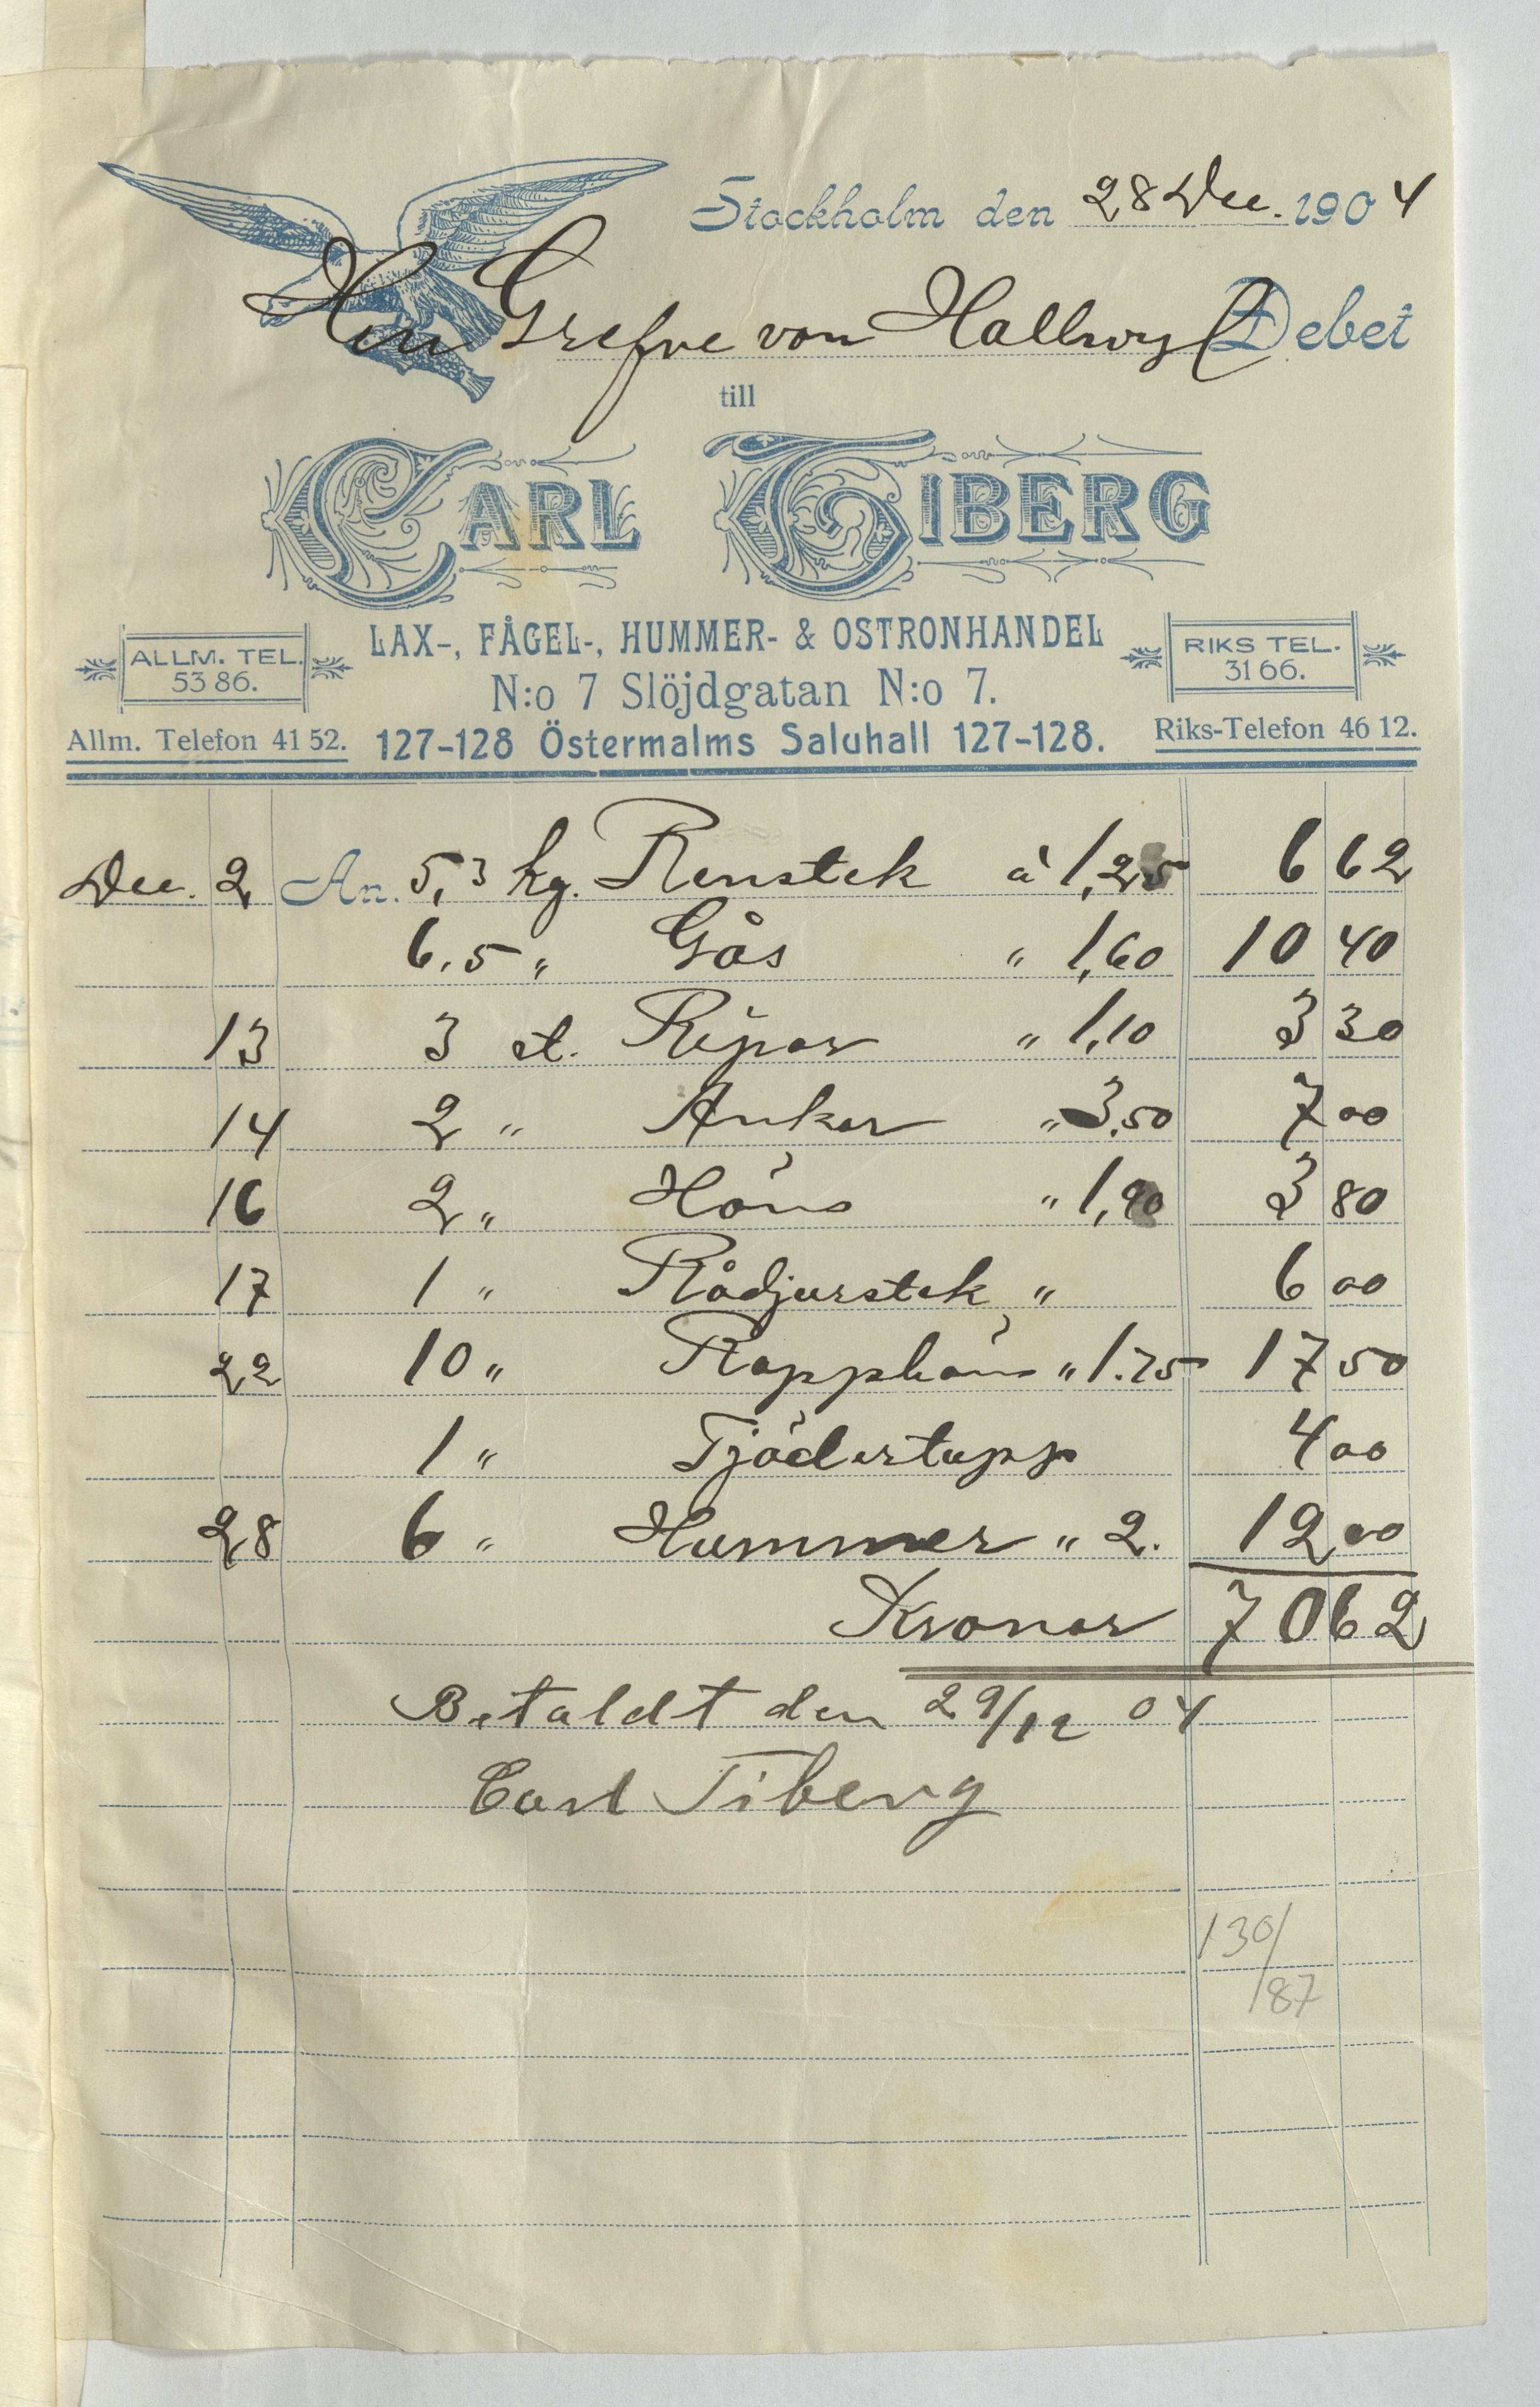 Stockholm den 28 Dec. 1904
Herr Grefve von Hallwyl Debet
till
CARL TIBERG
LAX-, FÅGEL-, HUMMER- & OSTRONHANDEL
ALLM. TEL. 53 86.
RIKS TEL. 31 66.
N:o 7 Slöjdgatan N:o 7.
Allm. Telefon 41 52. 127-128 Östermalms Saluhall 127-128. Riks-Telefon 46 12.
Dec. 2 An. 5,3 kg. Renstek à 1,25 6 62
6,5 " Gås " 1,60 10 40
13 3 st. Ripor " 1,10 3 30
14 2 " Ankor " 3,50 7 00
16 2 " Höns " 1,90 3 80
17 1 " Rådjurstek " 6 00
22 10 " Rapphöns " 1.75 17 50
1 " Tjädertupp 4 00
28 6 " Hummer " 2. 12 00
Kronor 70 62
Betaldt den 29/12 04
Carl Tiberg
130/
187